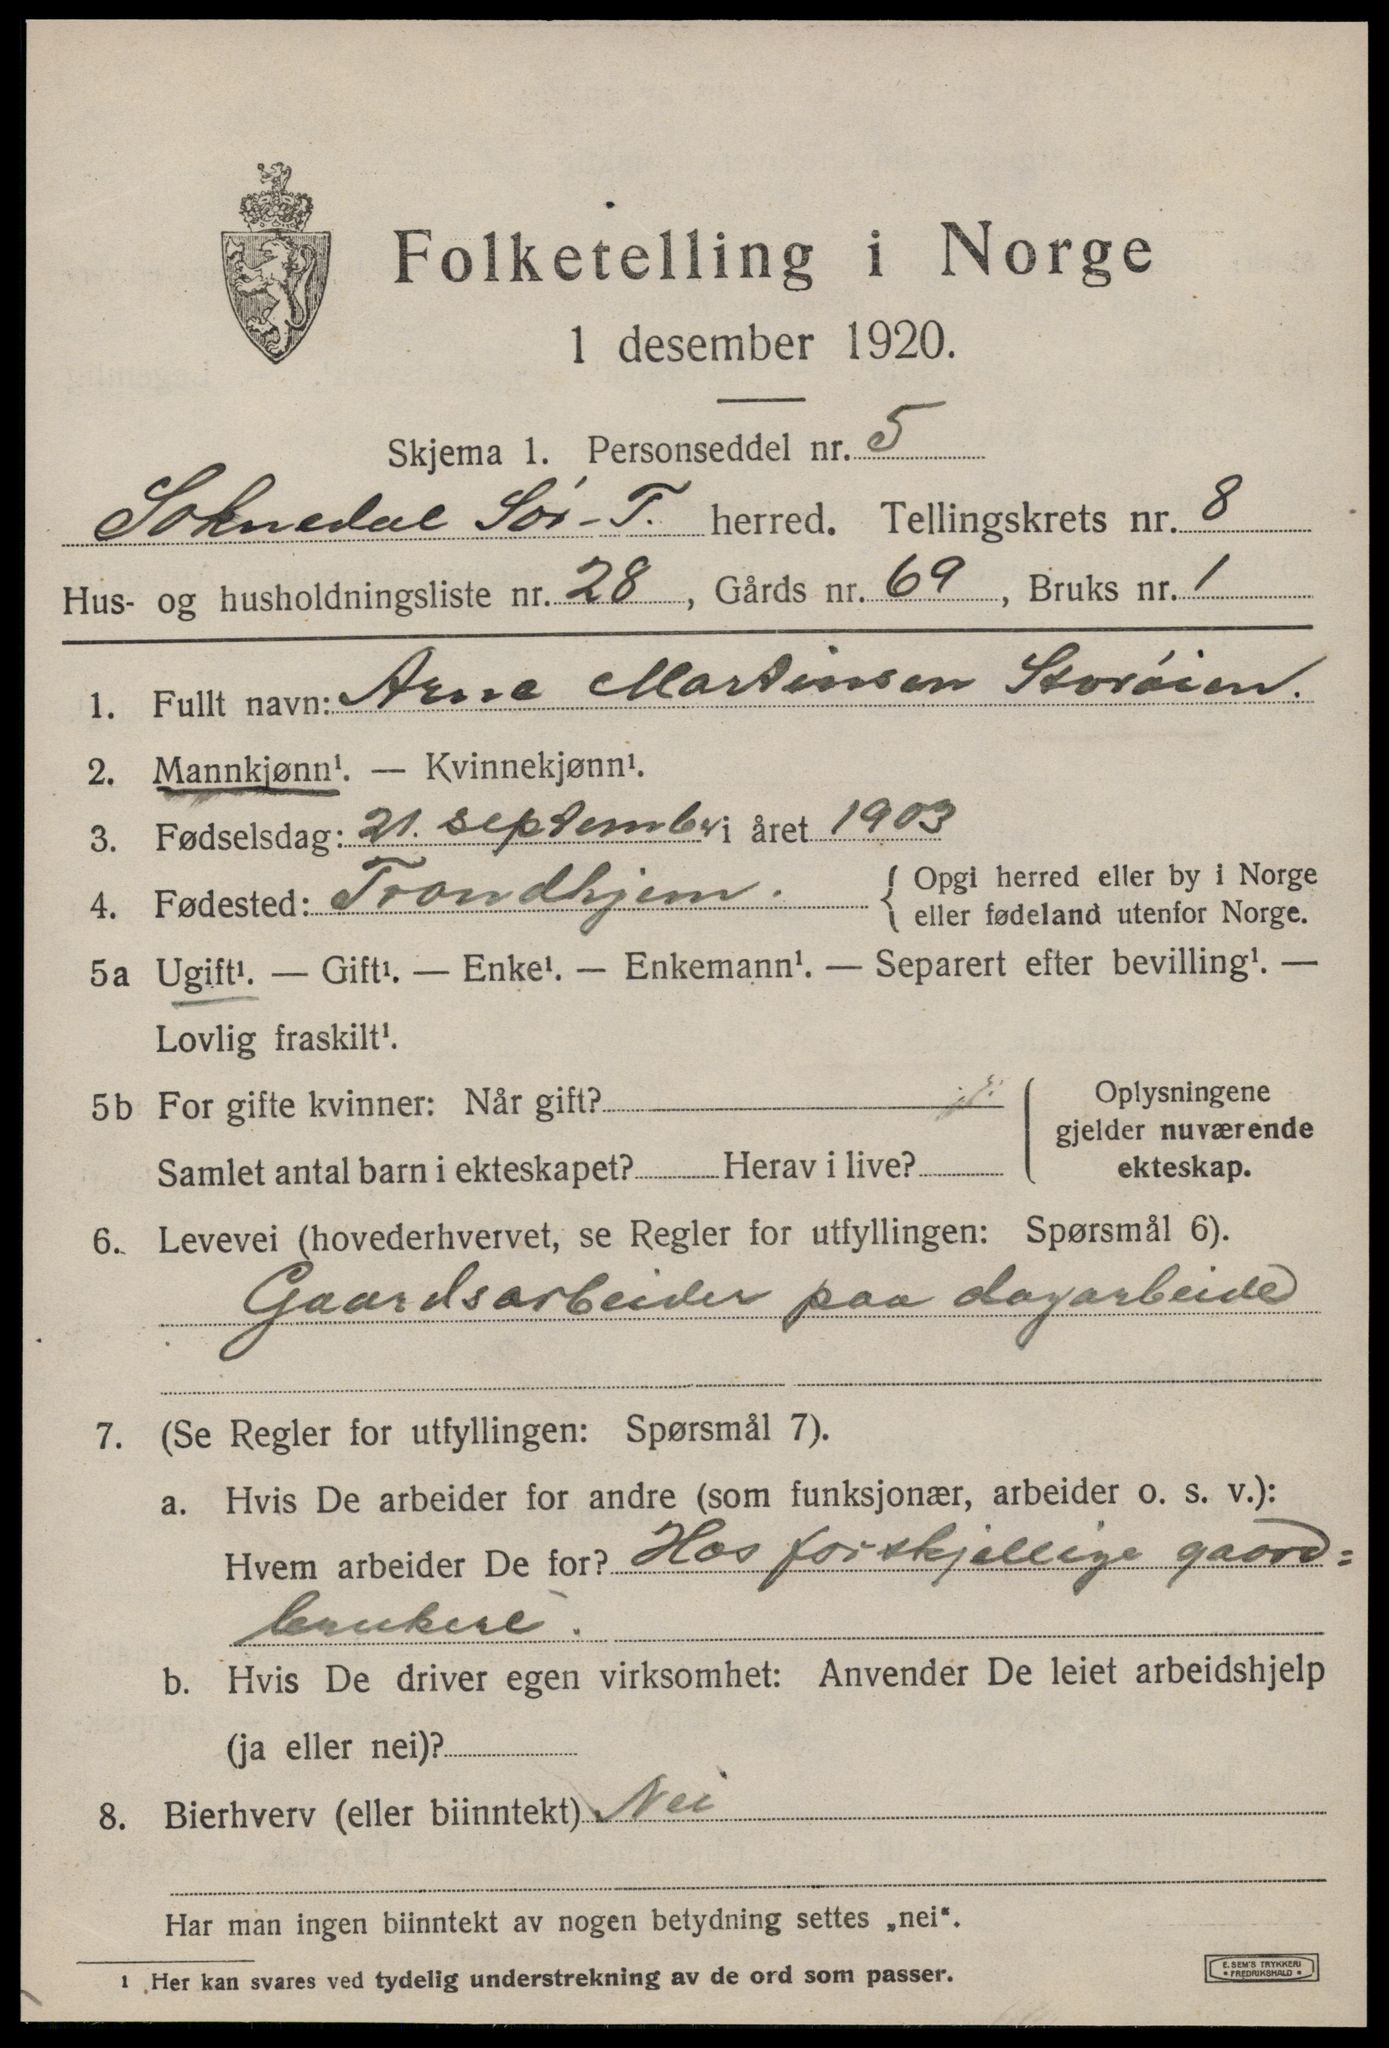 Folketelling i Norge
1 desember 1920.
Skjema 1. Personseddel nr. 5
Soknedal Sør-T. herred. Tellingskrets nr. 8
Hus- og husholdningsliste nr. 28, Gårds nr. 69, Bruks nr. 1
1. Fullt navn: Arne Martinsen Storøien.
2. Mannkjønn¹. — Kvinnekjønn¹.
3. Fødselsdag: 21. september i året 1903
4. Fødested: Trondhjem. { Opgi herred eller by i Norge
eller fødeland utenfor Norge.
5a Ugift¹. — Gift¹. — Enke¹. — Enkemann¹. — Separert efter bevilling¹. —
Lovlig fraskilt¹.
5b For gifte kvinner: Når gift?
Samlet antal barn i ekteskapet? Herav i live?
Oplysningene
gjelder nuværende
ekteskap.
6. Levevei (hovederhvervet, se Regler for utfyllingen: Spørsmål 6).
Gaardsarbeider paa dagarbeide
7. (Se Regler for utfyllingen: Spørsmål 7).
a. Hvis De arbeider for andre (som funksjonær, arbeider o. s. v.):
Hvem arbeider De for? Hos forskjellige gaard=
brukere.
b. Hvis De driver egen virksomhet: Anvender De leiet arbeidshjelp
(ja eller nei)?
8. Bierhverv (eller biinntekt) Nei
Har man ingen biinntekt av nogen betydning settes „nei“.
¹ Her kan svares ved tydelig understrekning av de ord som passer.
E. SEM'S TRYKKERI
• FREDRIKSHALD •